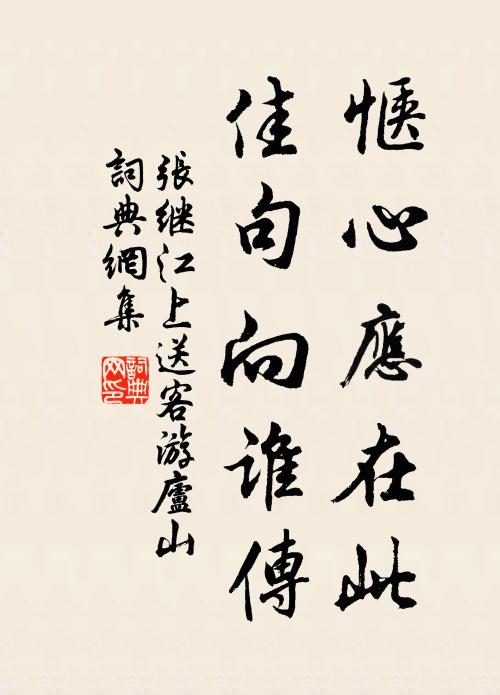 惬心應在此
佳句向誰傳
張继江上送客游廬山
詞典網集
詞典
网印